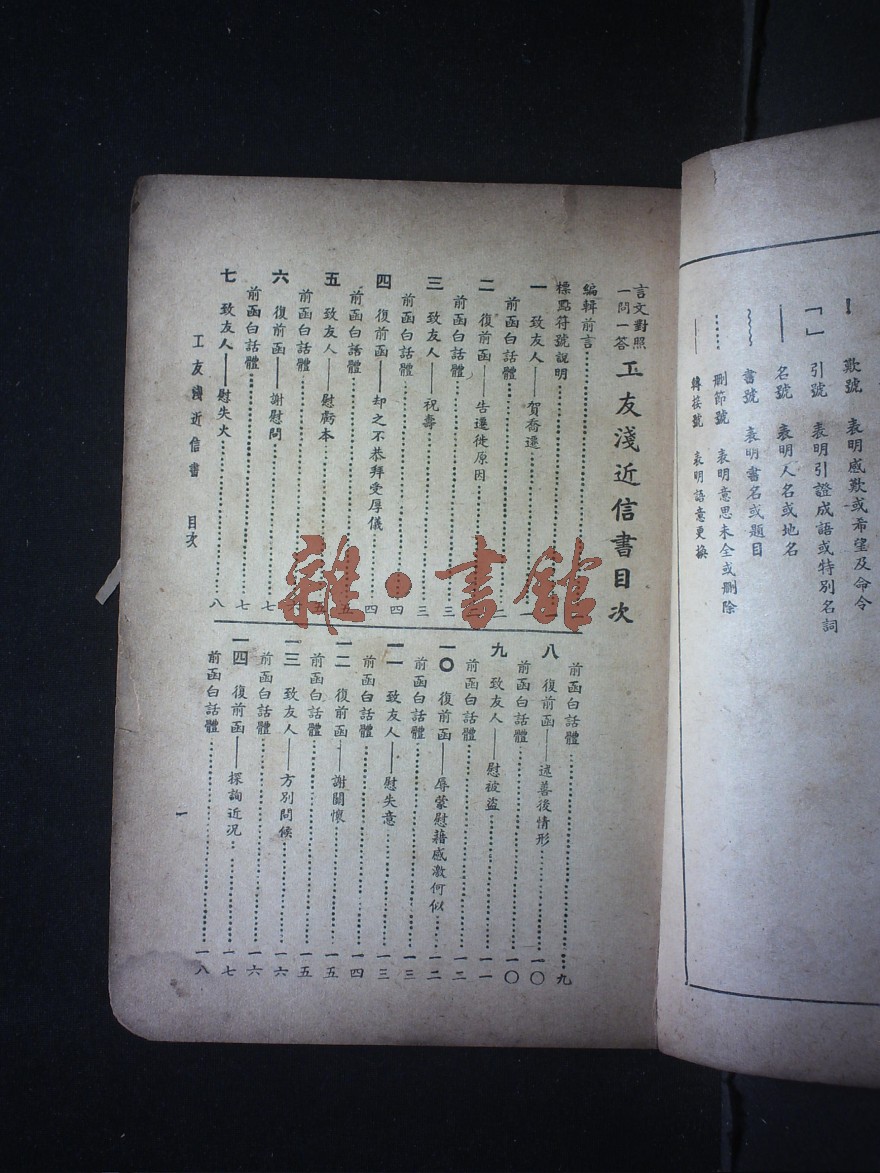 ！ 歎號 表明感歎或希望及命令
「」 引號 表明引證成語或特別名詞
—— 名號 表明人名或地名
﹏﹏ 書號 表明書名或題目
…… 刪節號 表明意思未全或刪除
—— 轉接號 表明語意更換
言文對照
一問一答
工友淺近信書目次
編輯前言……
標點符號說明……
一 致友人——賀喬遷……一
前函白話體……二
二 復前函——告遷徙原因……
前函白話體……三
三 致友人——祝壽……三
前函白話體……四
四 復前函——却之不恭拜受厚儀……四
前函白話體……五
五 致友人——慰虧本……五
前函白話體……六
六 復前函——謝慰問……七
前函白話體……七
七 致友人——慰失火……八
前函白話體……九
八 復前函——述善後情形……一〇
前函白話體……一〇
九 致友人——慰被盜……一一
前函白話體……一二
一〇 復前函——辱蒙慰藉感激何似……一二
前函白話體……一三
一一 致友人——慰失意……一三
前函白話體……一四
一二 復前函——謝關懷……一五
前函白話體……一五
一三 致友人——方別問候……一六
前函白話體……一六
一四 復前函——探詢近況……一七
前函白話體……一八
工友淺近信書 目次
一
雜·書館